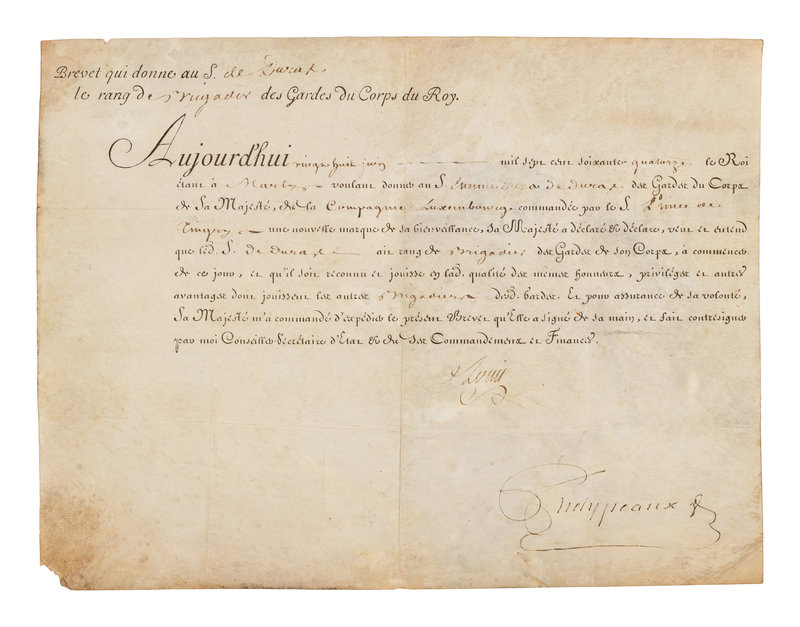 Brevet qui donne au S. de Durat
le rang de Brigadier des Gardes du Corps du Roy.
Aujourd'hui vingt huit juin mil sept cent soixante quatorze le Roi
étant à Marly voulant donner au S. de Durat des Gardes du Corps
de Sa Majesté, de la Compagnie Luxembourg commandée par le S. Prince de
Tingry une nouvelle marque de sa bienveillance, Sa Majesté a déclaré & déclare, veut et entend
que led. S. de Durat ait rang de Brigadier des Gardes de son Corps, à commencer
de ce jour, et qu'il soit reconnu et jouisse en lad. qualité des mêmes honneurs, privilèges et autres
avantages dont jouissent les autres Brigadiers desd. Gardes. Et pour assurance de sa volonté,
Sa Majesté m'a commandé d'expédier le présent Brevet qu'Elle a signé de sa main, et fait contresigner
par moi Conseiller Secrétaire d'Etat & de Ses Commandemens et Finances.
Louis
Phelypeaux